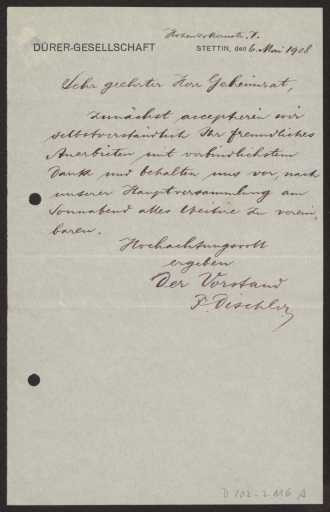 Hohenzollernstr. 7.
DÜRER-GESELLSCHAFT
STETTIN, den 6. Mai 1908
Sehr geehrter Herr Geheimrat,
zunächst acceptieren wir
selbstverständlich Ihr freundliches
Anerbieten mit verbindlichstem
Dank und behalten uns vor, nach
unserer Hauptversammlung am
Sonnabend alles Weitere zu verein-
baren.
Hochachtungsvoll
ergeben
Der Vorstand
F. Dischler
D 102-2 116 A